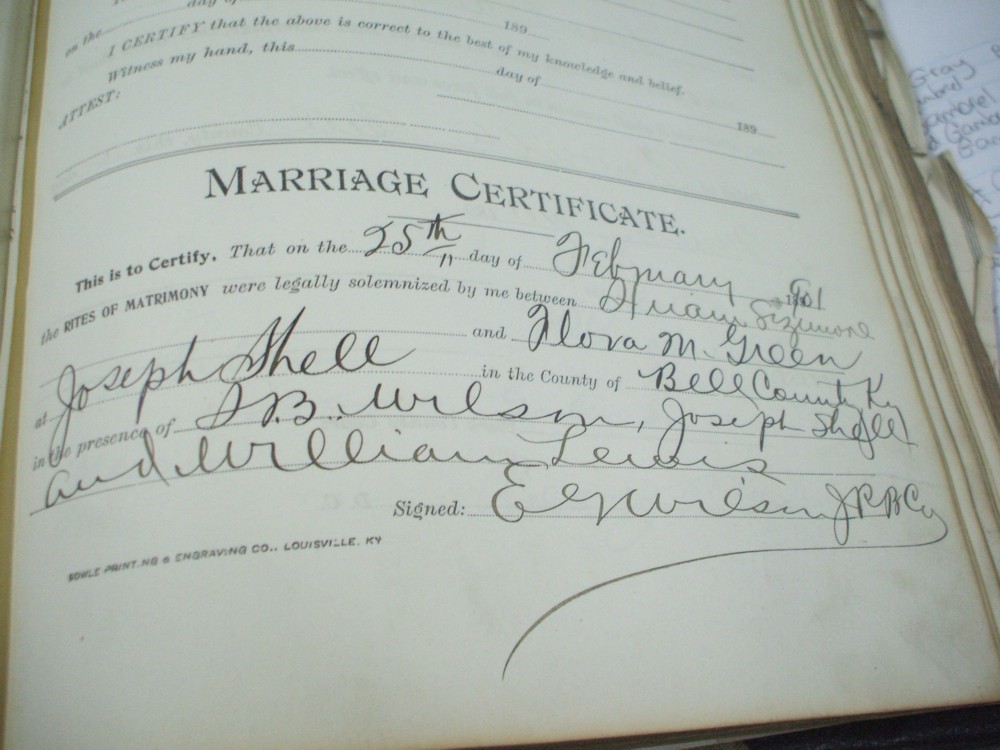 day of
on the 189
I CERTIFY that the above is correct to the best of my knowledge and belief.
Witness my hand, this day of
189
ATTEST:
MARRIAGE CERTIFICATE.
This is to Certify, That on the 25th day of February 1901
the RITES OF MATRIMONY were legally solemnized by me between Hiram Sizemore
and Flora M. Green
at Joseph Shell in the County of Bell County Ky
in the presence of S.B. Wilson, Joseph Shell
and William Lewis
Signed: E G Wilson JPBC
PRINTING & ENGRAVING CO., LOUISVILLE, KY
Gray